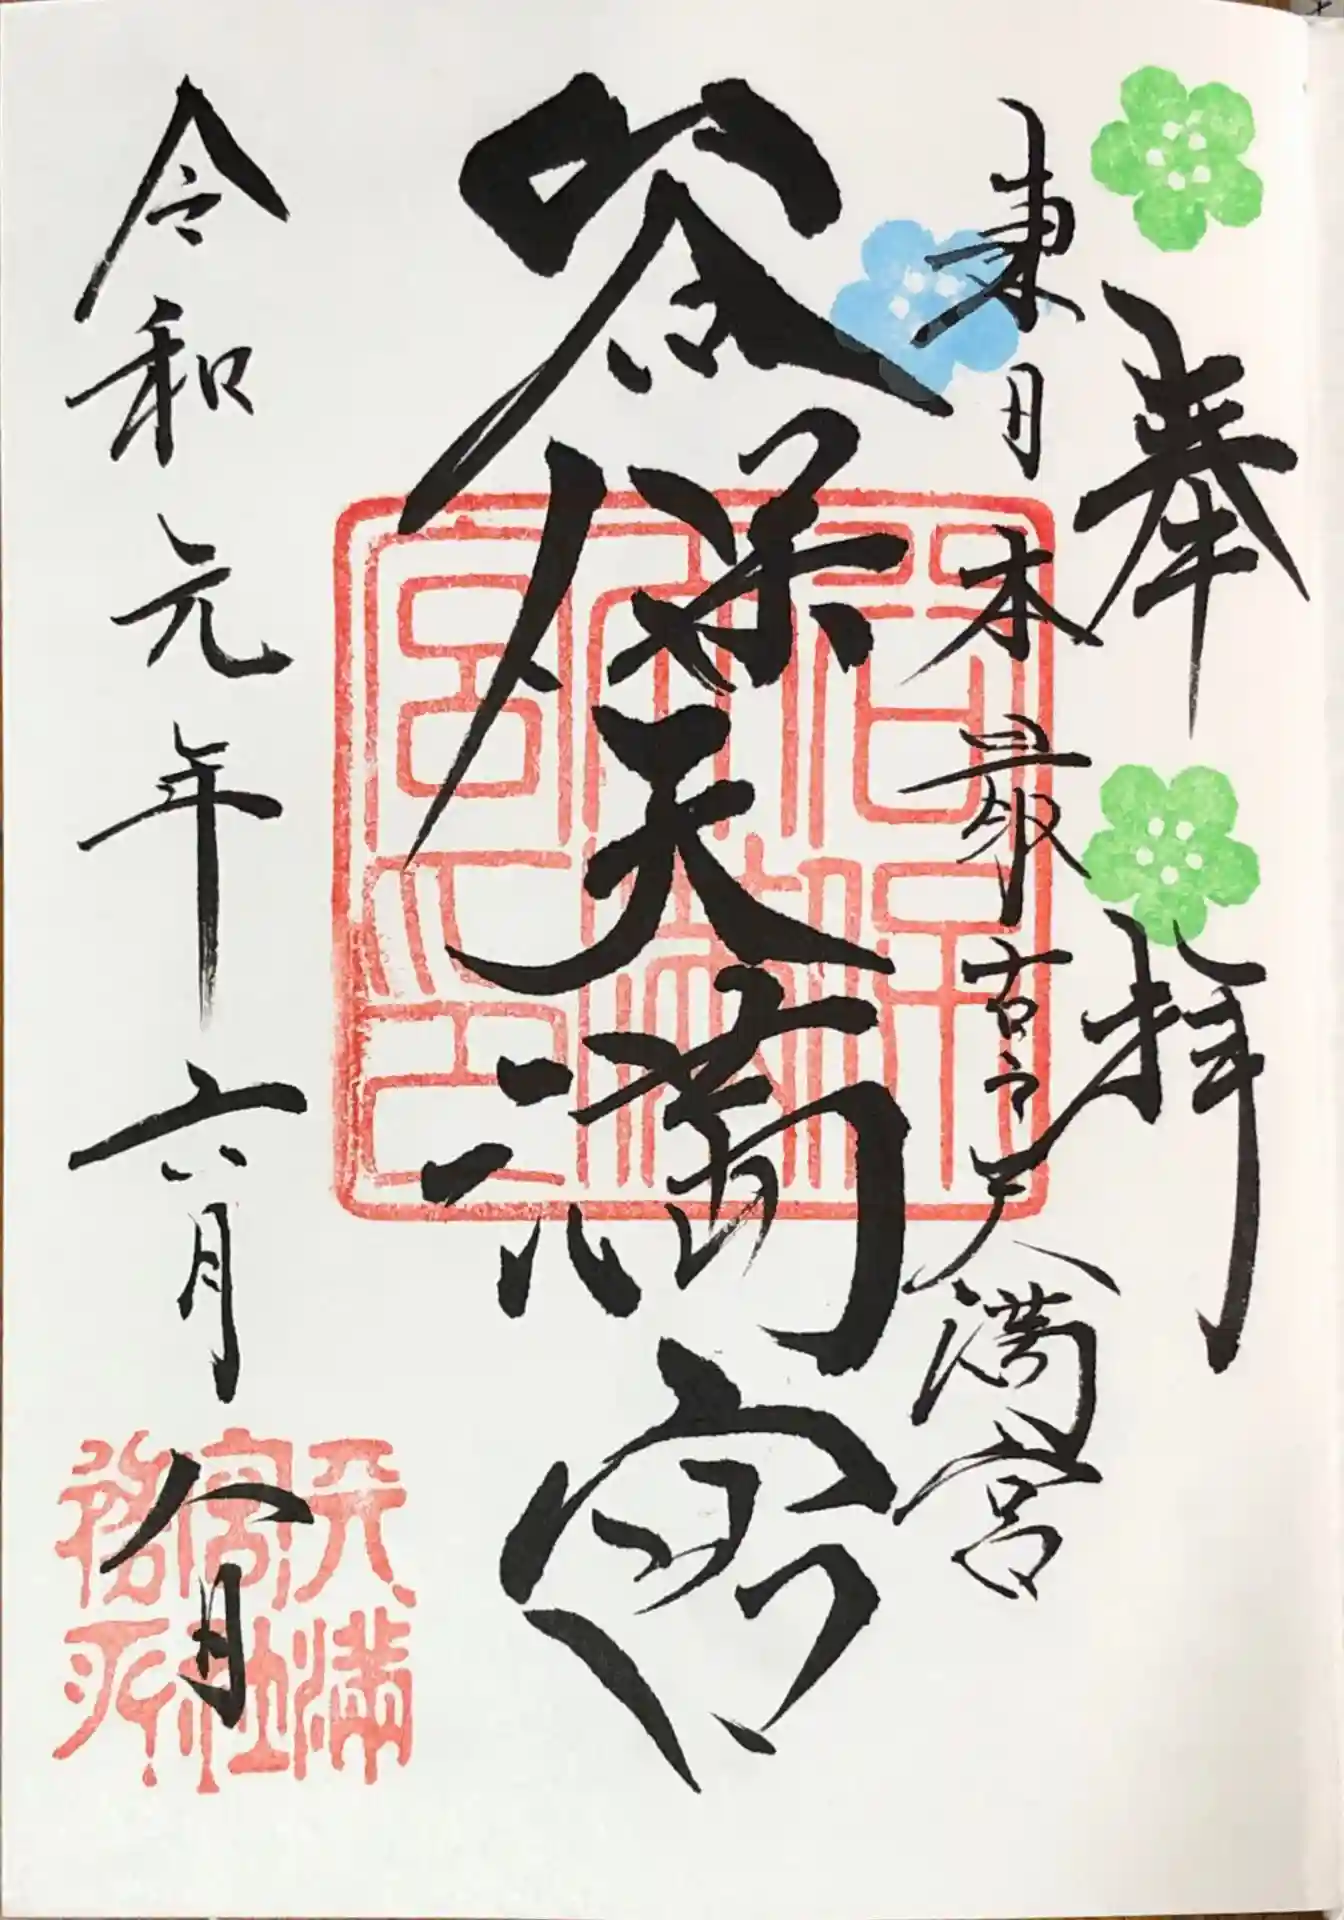 奉拝
東日本最古之天満宮
谷保天満宮
令和元年六月八日
谷保天満宮印
天満宮社務所